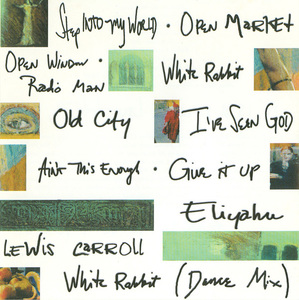 Step INTO my WORLD · OPEN MARKET
OPEN WINDOW ·
Radio MAN
White Rabbit
Old City
I've Seen GOD
Ain't This Enough · GIVE IT UP
Eliyahu
LEWIS CARROLL
White Rabbit (Dance Mix)